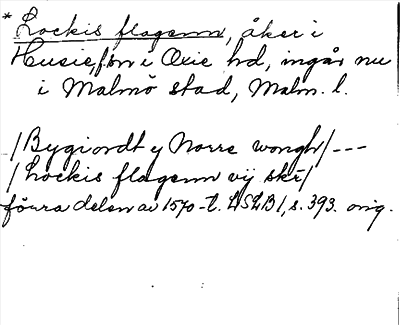 * Lockis flagenn, åker i
Husie, fsn i Oxie hd, ingår nu
i Malmö stad, Malm. l.
/Bygiordt y Norre wongh/---
/Lockis flagenn vij skr/
förra delen av 1570-t. LSLB1, s. 393. orig.